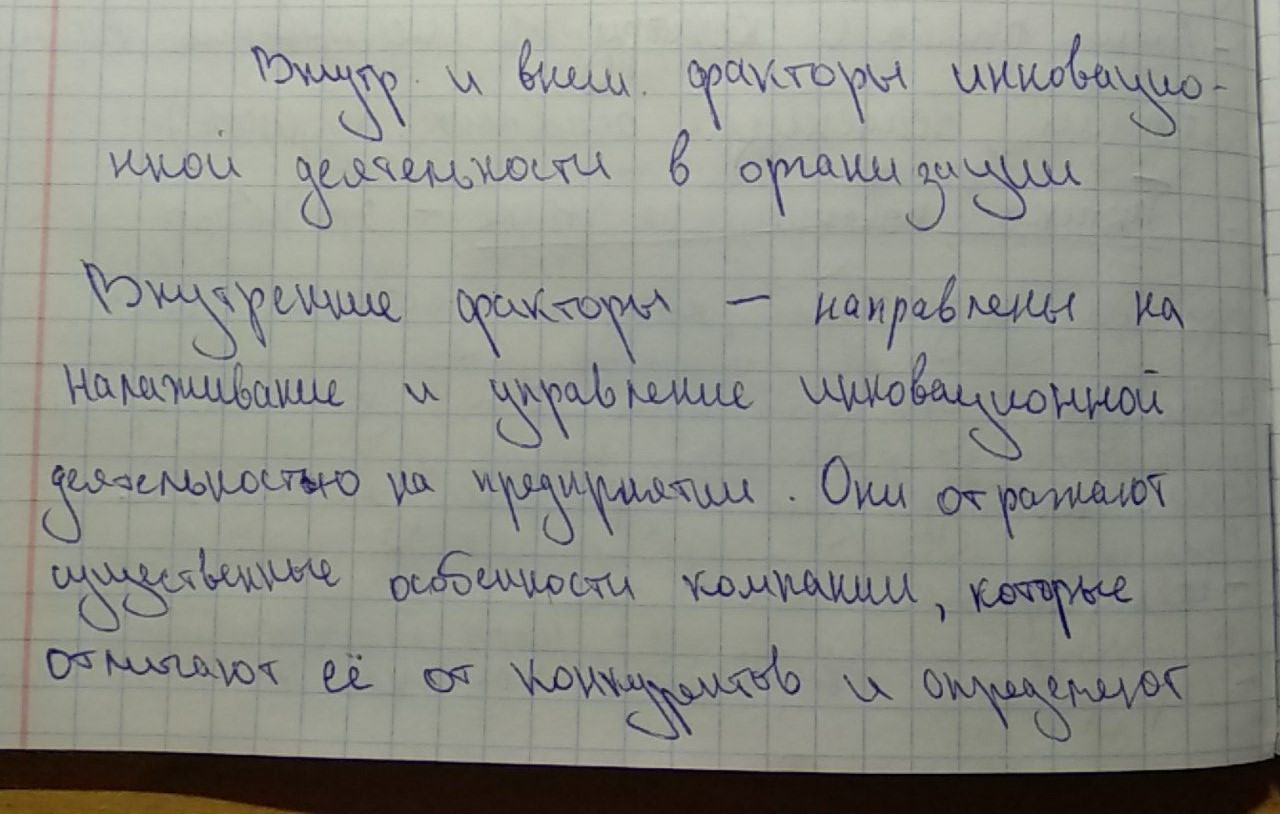 Внутр. и внеш. факторы инновацио-
нной деятельности в организации
Внутренние факторы — направлены на
налаживание и управление инновационной
деятельностью на предприятии. Они отражают
существенные особенности компании, которые
отличают её от конкурентов и определяют